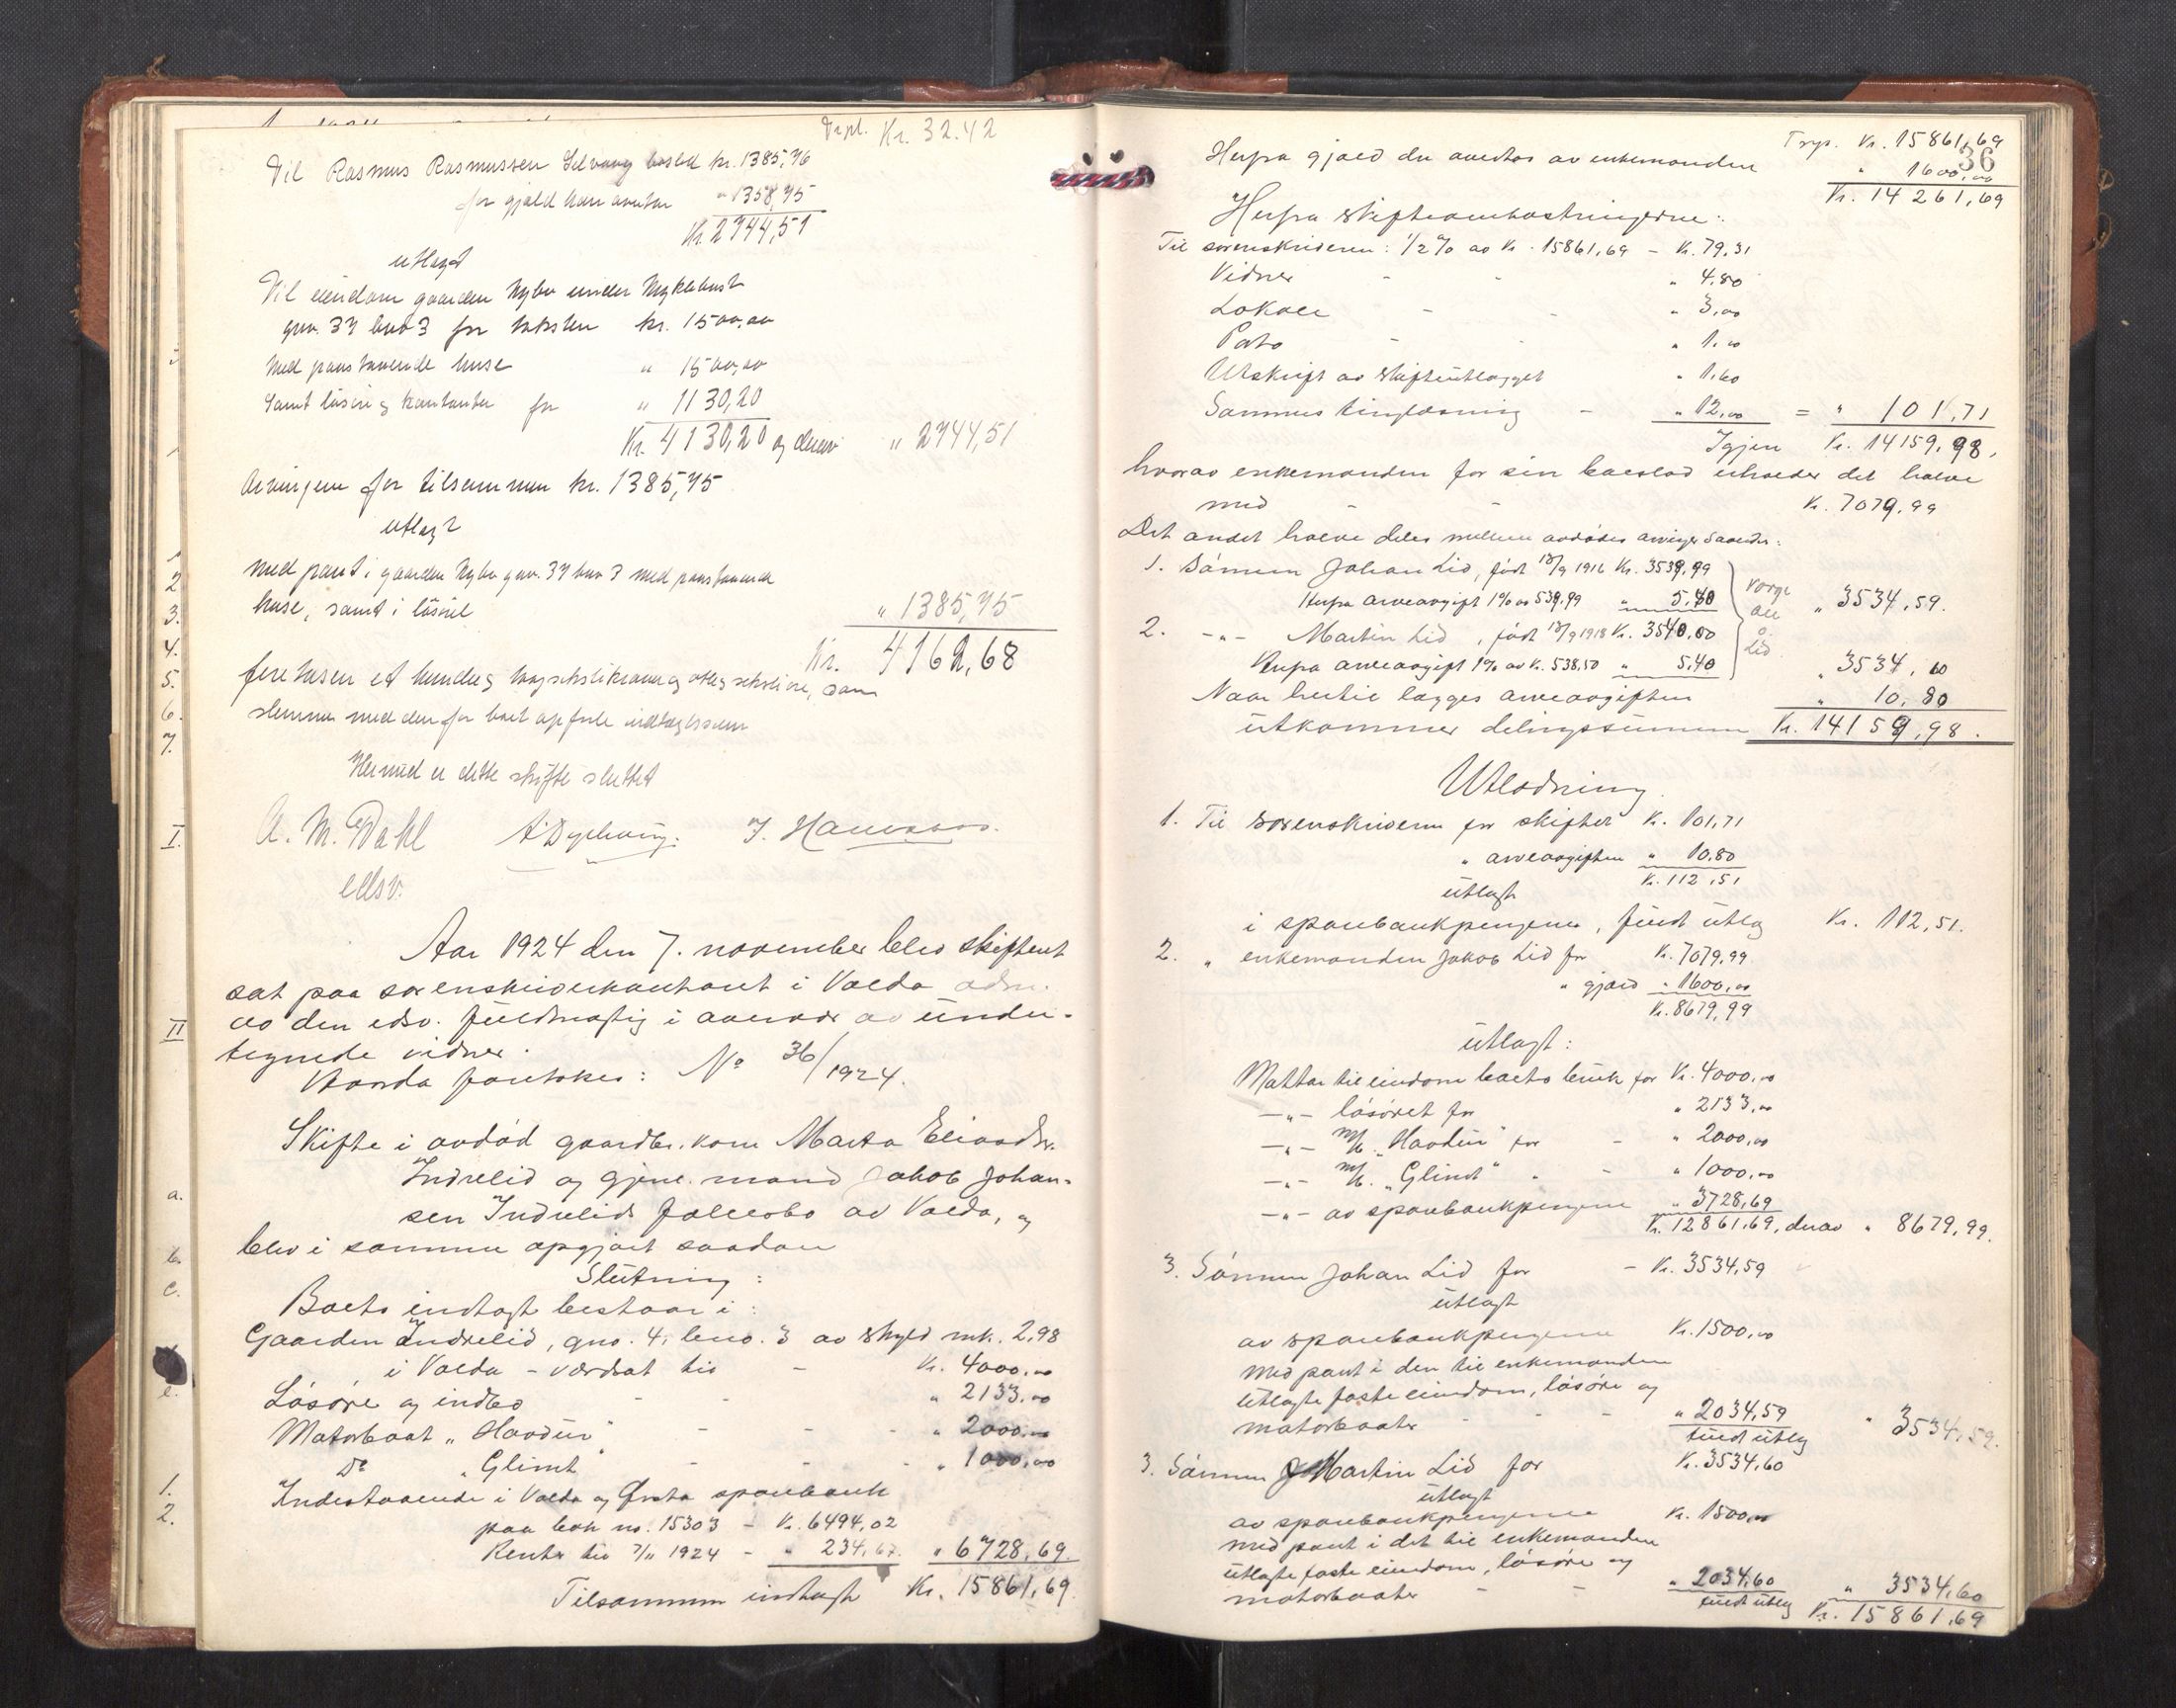 Trspt. Kr. 32.42
Til Rasmus Rasmussen Selvaag boslod kr. 1385,76
for gjæld han overtar " 1358,75
Kr. 2744,51
utlagt
Til eiendom gaarden Nybø under Myklebust
gnr. 37 bno 3 for taksten kr. 1500,00
med paastaaende huse " 1500,00
samt løsøre og kontanter for " 1130,20
Kr. 4130,20 og derav " 2744,51
Arvingene for tilsammen kr. 1385,75
utlagt
med pant i gaarden Nybø gnr. 37 bno 3 med paastaaende
huse, samt i løsøre " 1385,75
Kr. 4162,68
fire tusen et hundre og og seksti øre, som
stemmer med den for boet opførte indtægtssum
Hermed er dette skifte sluttet
A. M. Dahl
edsv.
Aar 1924 den 7. november blev skifteret
sat paa sorenskriverkontoret i Volda adm.
av den edsv. fuldmægtig i overvær av under-
tegnede vidner.
Hvorda foretokes: No 36/1924.
Skifte i avdød gaardbr. kone Marta Eliasdtr.
Indrelid og gjenl. mand Jakob Johan-
sen Indrelids fællesbo av Volda, og
blev i samme opgjort saadan
Slutning:
Boets indtægt bestaar i:
Gaarden Indrelid, gno. 4, bno. 3 av skyld mk. 2,98
i Volda - værdsat til - Kr. 4000,00
Løsøre og indbo - - " 2133,00
Motorbaat "Havdur" - - " 2000,00
Do "Glimt" - - " 1000,00
Indestaaende i Volda og Ørsta sparebank
paa bok no. 15303 - Kr. 6494,02
Renter til 7/11 1924 - " 234,67 " 6728,69
Tilsammen indtægt Kr. 15861,69
36
Trsp. Kr. 15861,69
Herfra gjæld der overtas av enkemanden " 1600,00
Kr. 14261,69
Herfra skifteomkostningerne:
Til sorenskriveren: 1/2 % av Kr. 15861,69 - Kr. 79,31
Vidner - - " 4,80
Lokale - - " 3,00
Porto - - " 1,00
Utskrift av skifteutlægget " 1,60
Sammes tinglæsning - " 12,00 = " 101,71
Igjen Kr. 14159,98,
hvorav enkemanden for sin boeslod erholder det halve
med - - Kr. 7079,99
Det andet halve deles mellem avdødes arvinger saaledes:
1. Sønnen Johan Lid, født 13/9 1916 Kr. 3539,99
Herfra arveavgift 1% av 539,99 " 5,40 " 3534,59.
2. -"- Martin Lid, født 13/9 1918 Kr. 3540,00
Herfra arveavgift 1% av K. 538,50 " 5,40 " 3534,60
Naar hertil lægges arveavgiften " 10,80
utkommer delingssummen Kr. 14159,98.
Utlodning
1. Til sorenskriveren for skiftet K. 101,71
" arveavgiften " 10,80
K. 112,51
utlagt
i sparebankpengene, fuldt utlæg Kr. 112,51.
2. " enkemanden Jakob Lid for K. 7079,99
" gjæld " 1600,00
K. 8679,99
utlagt:
Mottar til eiendom boets bruk for K. 4000,00
-"- løsøret for " 2133,00
-"- M/b. "Havdur" for - " 2000,00
-"- M/b. "Glimt" " - " 1000,00
-"- av sparebankpengene " 3728,69
K. 12861,69, derav " 8679,99.
3. Sønnen Johan Lid for - K. 3534,59
utlagt
av sparebankpengene K. 1500,00
med pant i den til enkemanden
utlagte faste eiendom, løsøre og
motorbaater - - " 2034,59 " 3534,59.
fuldt utlæg
3. Sønnen Martin Lid for K. 3534,60
utlagt
av sparebankpengene K. 1500,00
med pant i det til enkemanden
utlagte faste eiendom, løsøre og
motorbaater - - " 2034,60 " 3534,60
fuldt utlæg Kr. 15861,69